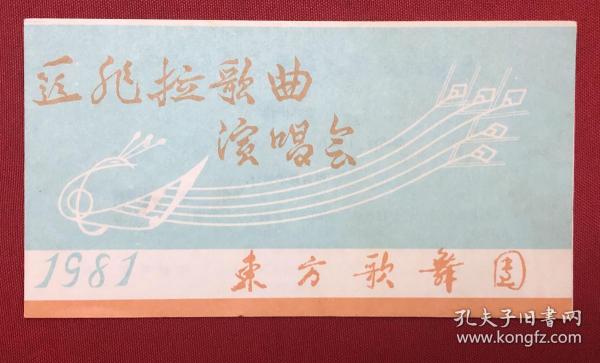 拉歌曲
演唱会
1981
東方歌舞团
孔夫子旧书网
kongfz.com